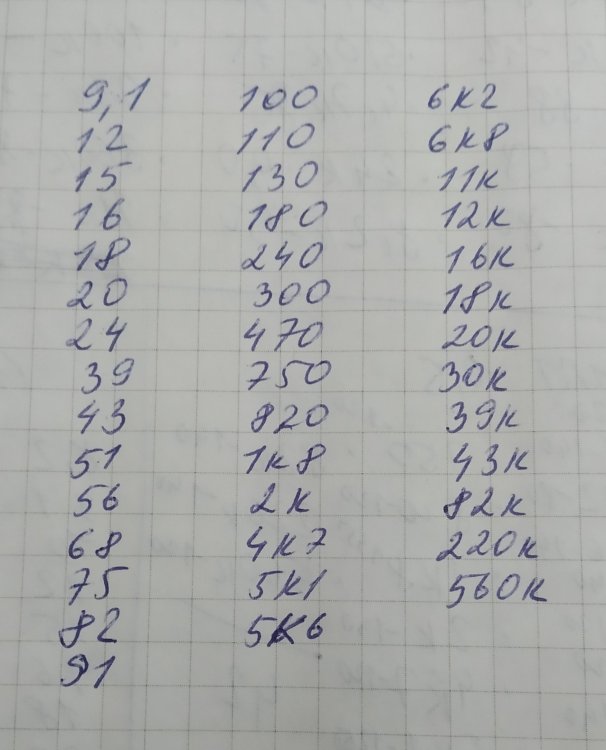 9,1
12
15
16
18
20
24
39
43
51
56
68
75
82
91
100
110
130
180
240
300
470
750
820
1к8
2к
4к7
5к1
5к6
6к2
6к8
11к
12к
16к
18к
20к
30к
39к
43к
82к
220к
560к